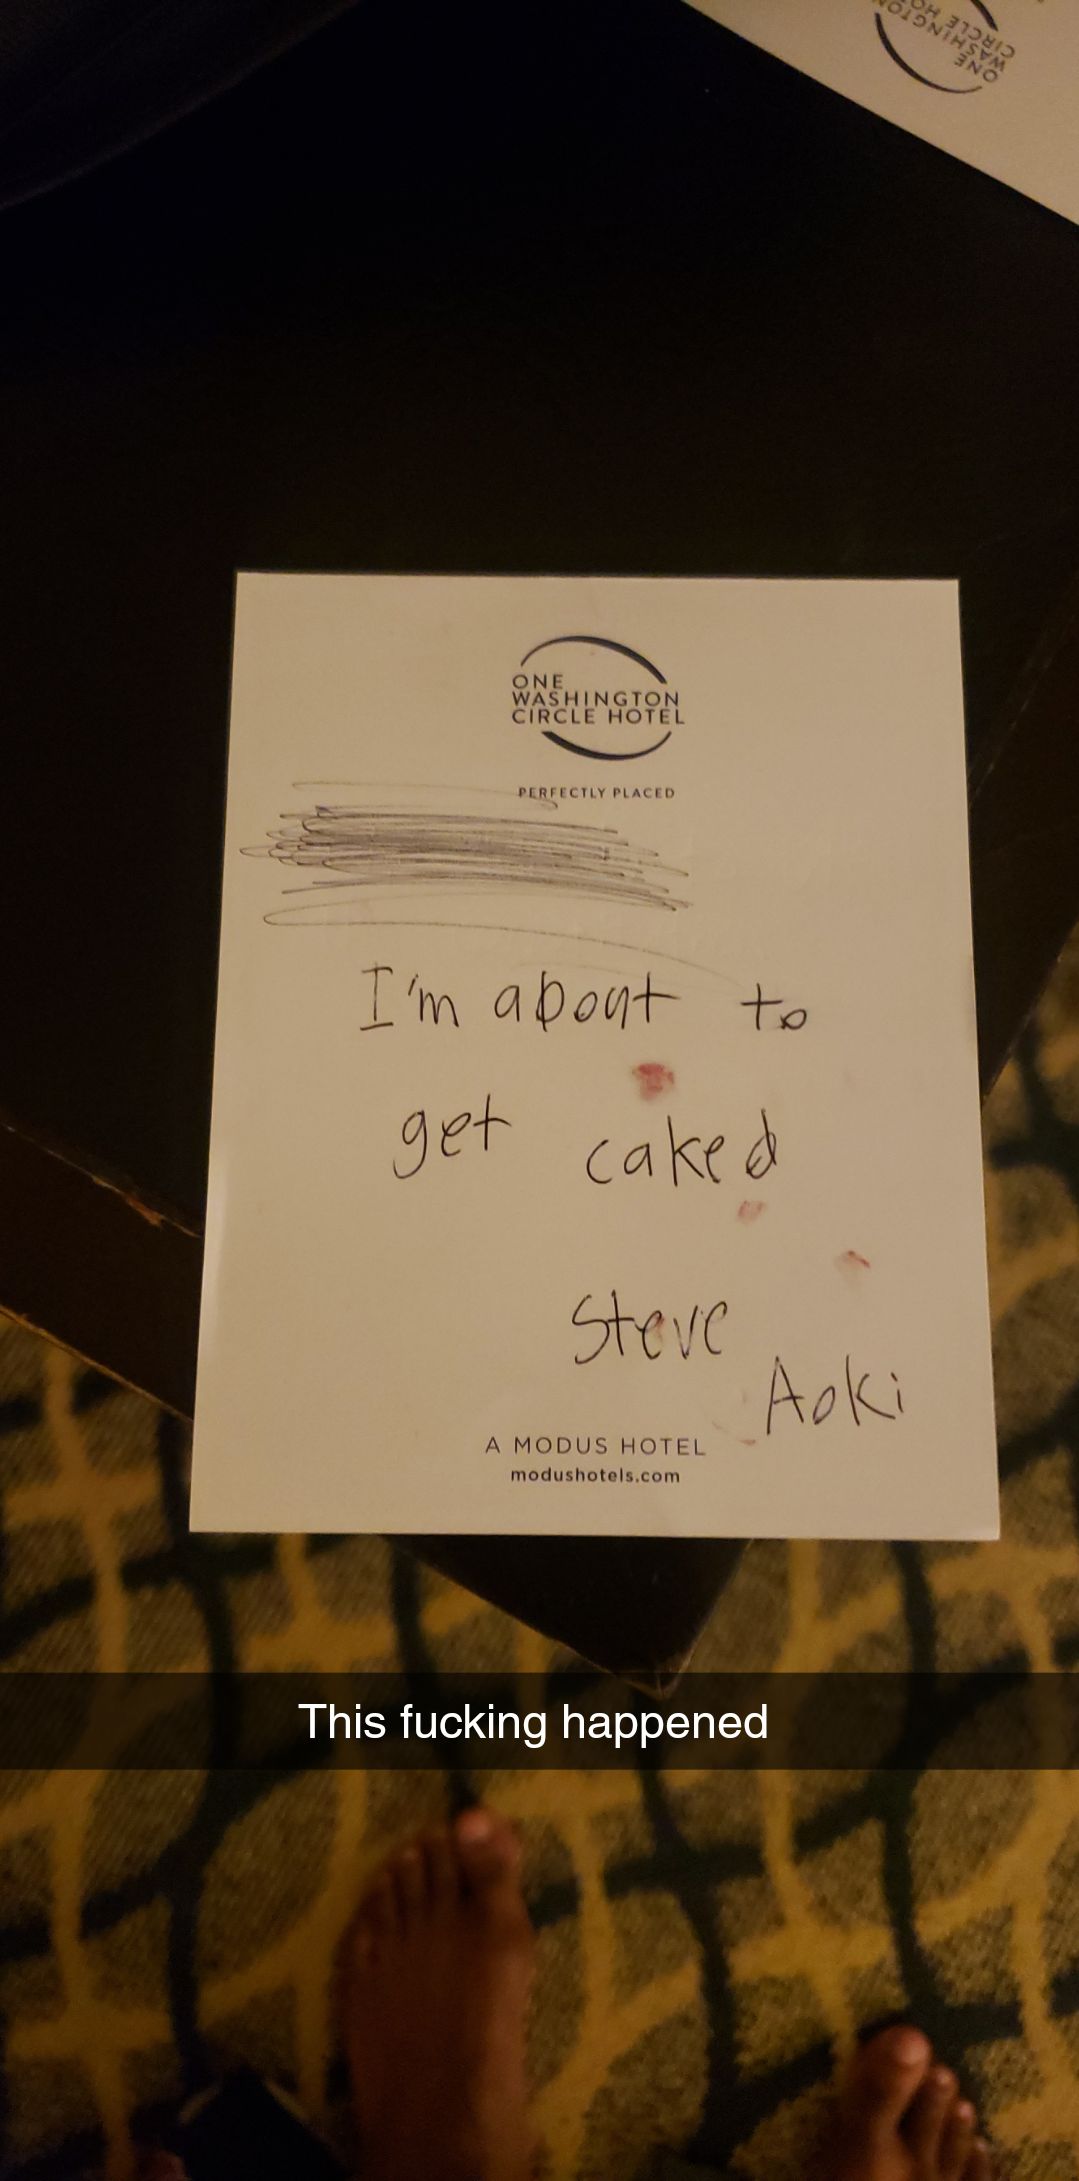 ONE
WASHINGTON
CIRCLE HO
ONE
WASHINGTON
CIRCLE HOTEL
PERFECTLY PLACED
I'm about to
get caked
Steve
Aoki
A MODUS HOTEL
modushotels.com
This fucking happened